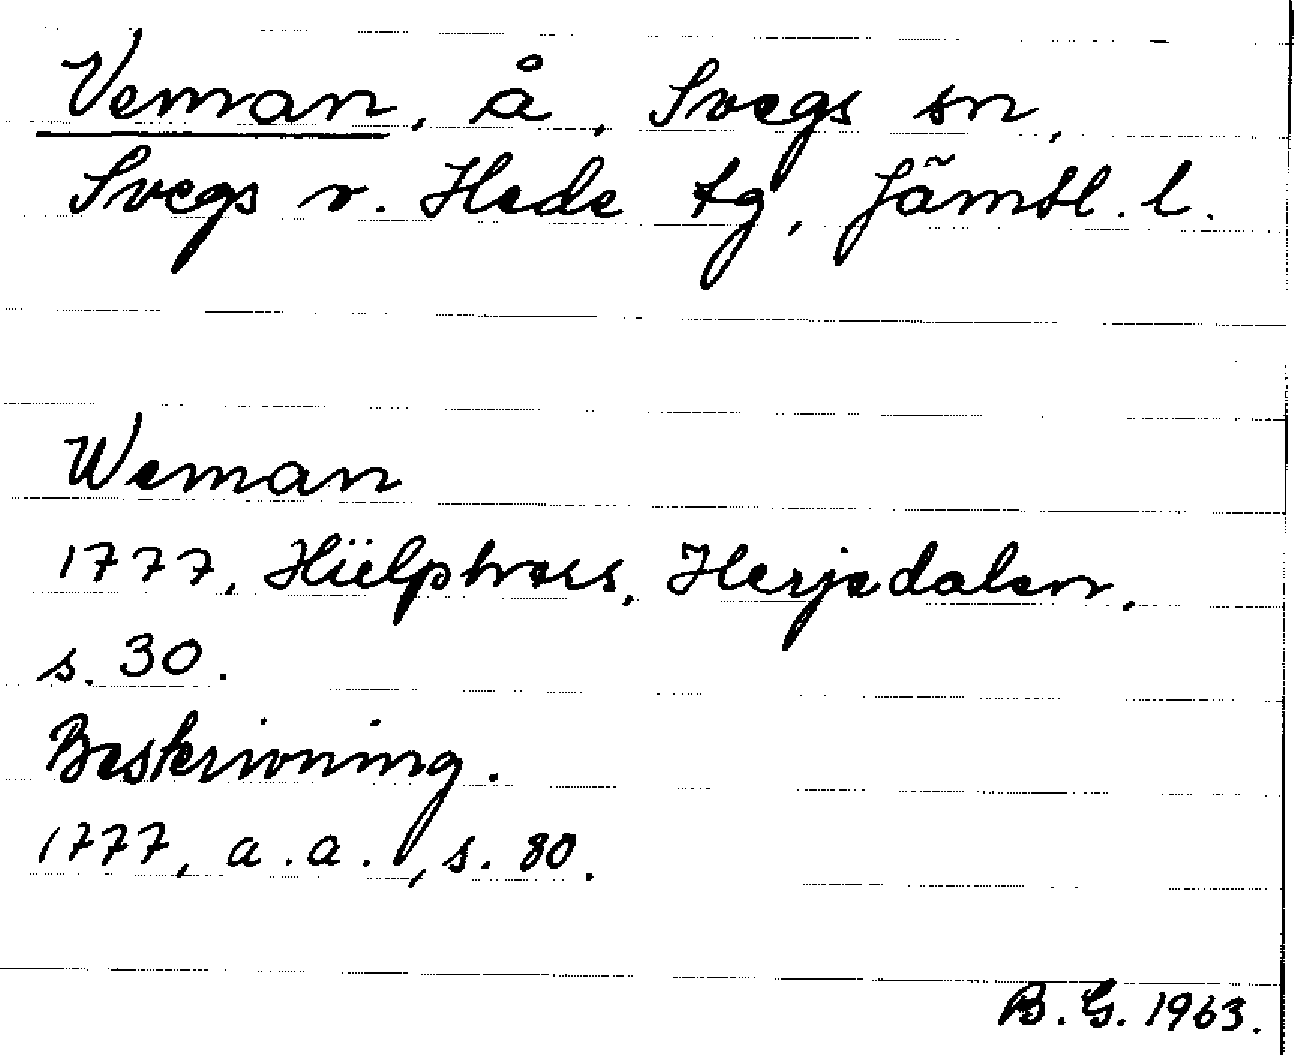 Veman, å, Svegs sn,
Svegs o. Hede tg, Jämtl. l.
Weman
1777, Hülphers, Herjedalen,
s. 30.
Beskrivning.
1777, a.a., s. 80.
B.G. 1963.